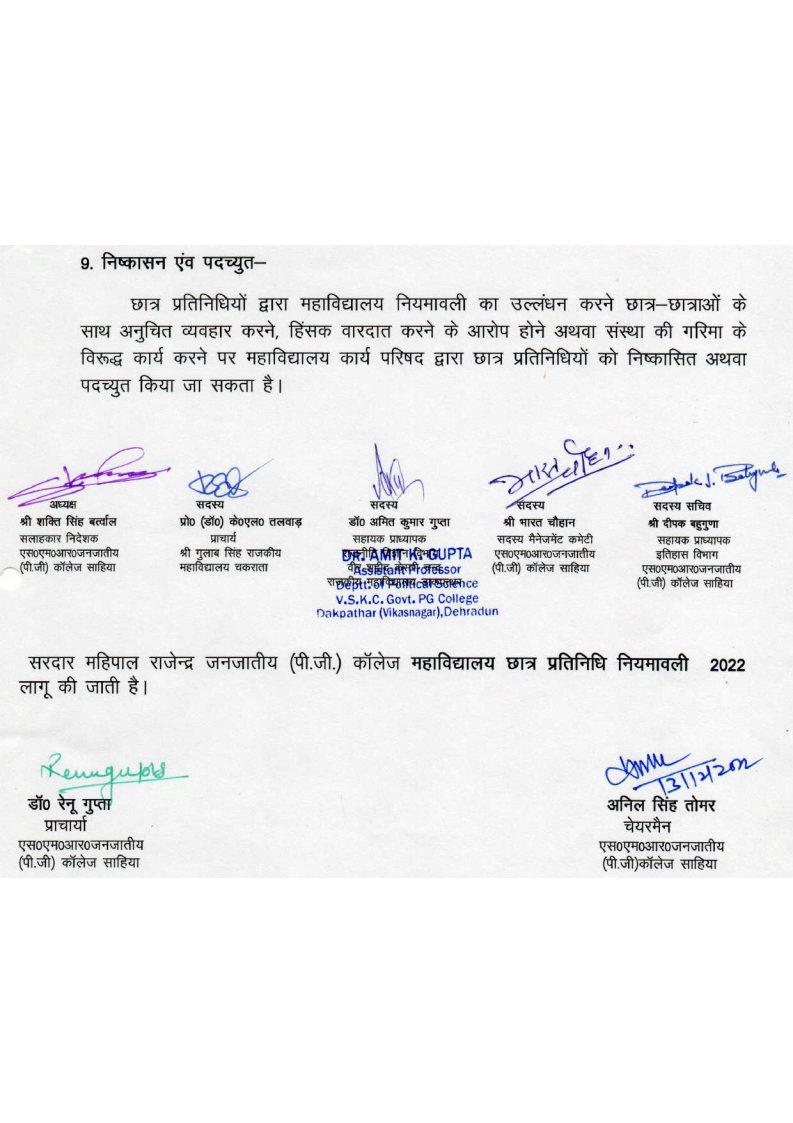 9. निष्कासन एंव पदच्युत–
छात्र प्रतिनिधियों द्वारा महाविद्यालय नियमावली का उल्लंघन करने छात्र–छात्राओं के
साथ अनुचित व्यवहार करने, हिंसक वारदात करने के आरोप होने अथवा संस्था की गरिमा के
विरूद्ध कार्य करने पर महाविद्यालय कार्य परिषद द्वारा छात्र प्रतिनिधियों को निष्कासित अथवा
पदच्युत किया जा सकता है।
अध्यक्ष
श्री शक्ति सिंह बर्त्वाल
सलाहकार निदेशक
एस०एम०आर०जनजातीय
(पी.जी) कॉलेज साहिया
सदस्य
प्रो० (डॉ०) के०एल० तलवाड़
प्राचार्य
श्री गुलाब सिंह राजकीय
महाविद्यालय चकराता
सदस्य
डॉ० अमित कुमार गुप्ता
सहायक प्राध्यापक
DR. AMIT K. GUPTA
Assistant Professor
Deptt. of Political Science
V.S.K.C. Govt. PG College
Dakpathar (Vikasnagar), Dehradun
भारत चौहान
सदस्य
श्री भारत चौहान
सदस्य मैनेजमेंट कमेटी
एस०एम०आर०जनजातीय
(पी.जी) कॉलेज साहिया
सदस्य सचिव
श्री दीपक बहुगुणा
सहायक प्राध्यापक
इतिहास विभाग
एस०एम०आर०जनजातीय
(पी.जी) कॉलेज साहिया
सरदार महिपाल राजेन्द्र जनजातीय (पी.जी.) कॉलेज महाविद्यालय छात्र प्रतिनिधि नियमावली 2022
लागू की जाती है।
Renugupta
डॉ० रेनू गुप्ता
प्राचार्या
एस०एम०आर०जनजातीय
(पी.जी) कॉलेज साहिया
अनिल सिंह तोमर
चेयरमैन
एस०एम०आर०जनजातीय
(पी.जी)कॉलेज साहिया